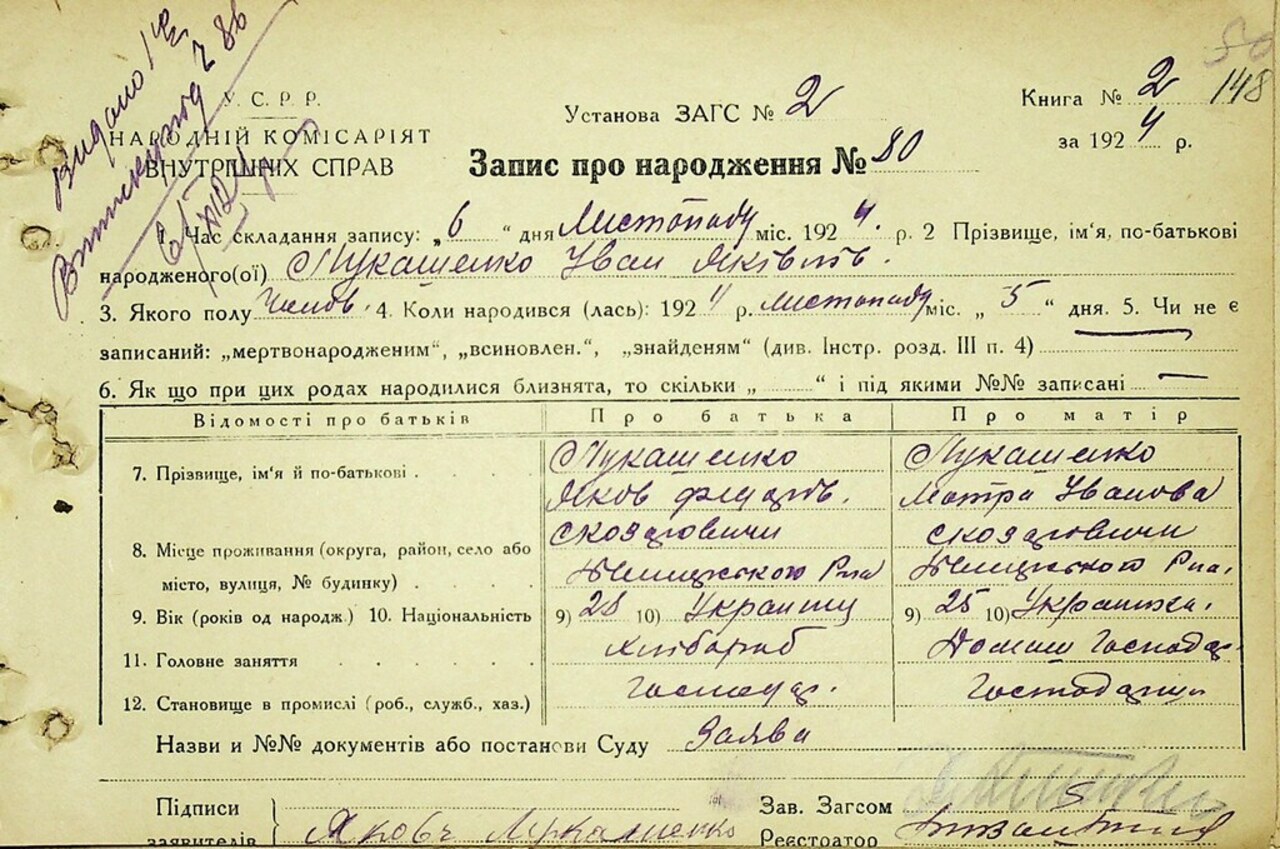 Видано
У. С. Р. Р.
НАРОДНІЙ КОМІСАРІЯТ
ВНУТРІШНІХ СПРАВ
Установа ЗАГС № 2
Книга № 2 148
за 1924 р.
Запис про народження № 80
1. Час складання запису: „6“ дня Листопаду міс. 1924. р. 2 Прізвище, ім'я, по-батькові
народженого(ої) Лукашенко Уван Яковлів.
3. Якого полу Чолов. 4. Коли народився (лась): 1924 р. листопаду міс. „5“ дня. 5. Чи не є
записаний: „мертвонародженим“, „всиновлен.“, „знайденям“ (див. Інстр. розд. III п. 4) —
6. Як що при цих родах народилися близнята, то скільки „ “ і під якими №№ записані —
Відомості про батьків Про батька Про матір
7. Прізвище, ім'я й по-батькові Лукашенко Лукашенко
Яков Мотра Уванова
8. Місце проживання (округа, район, село або
місто, вулиця, № будинку)
9. Вік (років од народж.) 10. Національність 9) 28 10) Украинц 9) 25 10) Украинка.
11. Головне заняття Хлібороб Домаш Господар.
12. Становище в промислі (роб., служб., хаз.) Господар.
Назви и №№ документів або постанови Суду Заява
Підписи Зав. Загсом
заявителів Яковъ Лукашенко Реєстратор